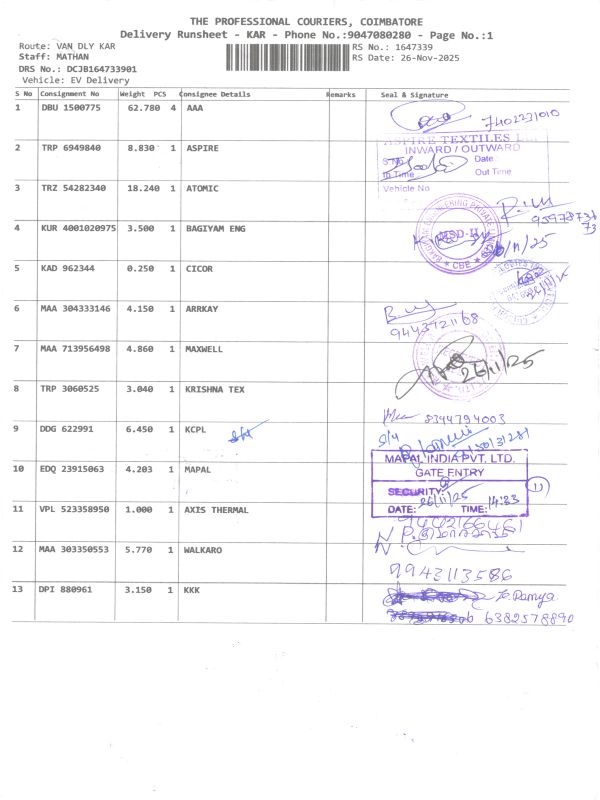 THE PROFESSIONAL COURIERS, COIMBATORE
Delivery Runsheet - KAR - Phone No.:9047080280 - Page No.:1
Route: VAN DLY KAR
RS No.: 1647339
Staff: MATHAN
RS Date: 26-Nov-2025
DRS No.: DCJB164733901
Vehicle: EV Delivery
S No Consignment No Weight PCS Consignee Details Remarks Seal & Signature
1 DBU 1500775 62.780 4 AAA
7402231010
2 TRP 6949840 8.830 1 ASPIRE
ASPIRE TEXTILES
INWARD / OUTWARD
S.No Date
In Time Out Time
3 TRZ 54282340 18.240 1 ATOMIC
Vehicle No
4 KUR 4001020975 3.500 1 BAGIYAM ENG
CBE
5 KAD 962344 0.250 1 CICOR
6 MAA 304333146 4.150 1 ARRKAY
9443721168
7 MAA 713956498 4.860 1 MAXWELL
26/11/25
8 TRP 3060525 3.040 1 KRISHNA TEX
8344794003
9 DDG 622991 6.450 1 KCPL
10 EDQ 23915063 4.203 1 MAPAL
MAPAL INDIA PVT. LTD.
GATE ENTRY
SECURITY:
DATE: 26/11/25 TIME: 14:33
11
11 VPL 523358950 1.000 1 AXIS THERMAL
9442166461
12 MAA 303350553 5.770 1 WALKARO
9942113586
13 DPI 880961 3.150 1 KKK
Ramya
6382578890